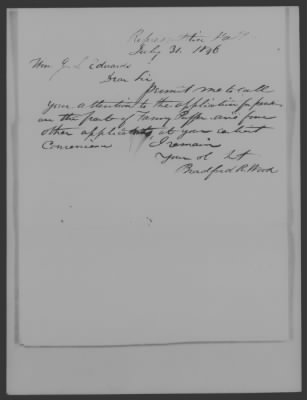 Representative Hall
July 31. 1846
Hon J. L. Edwards
Dear Sir
Permit me to call
your attention to the application for pension
on the part of Fanny and five
other applicants at your earliest
Convenience I remain
Your ob St
Bradford R. Wood